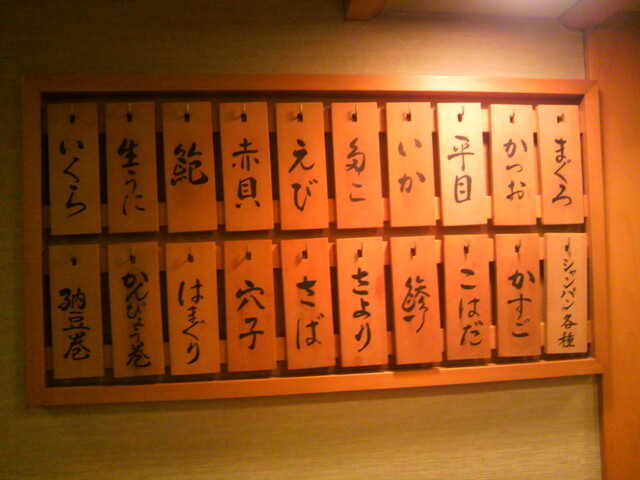 まぐろ
かつお
平目
いか
たこ
えび
赤貝
鮑
生うに
いくら
シャンパン各種
かすご
こはだ
さより
さば
穴子
はまぐり
かんぴょう巻
納豆巻